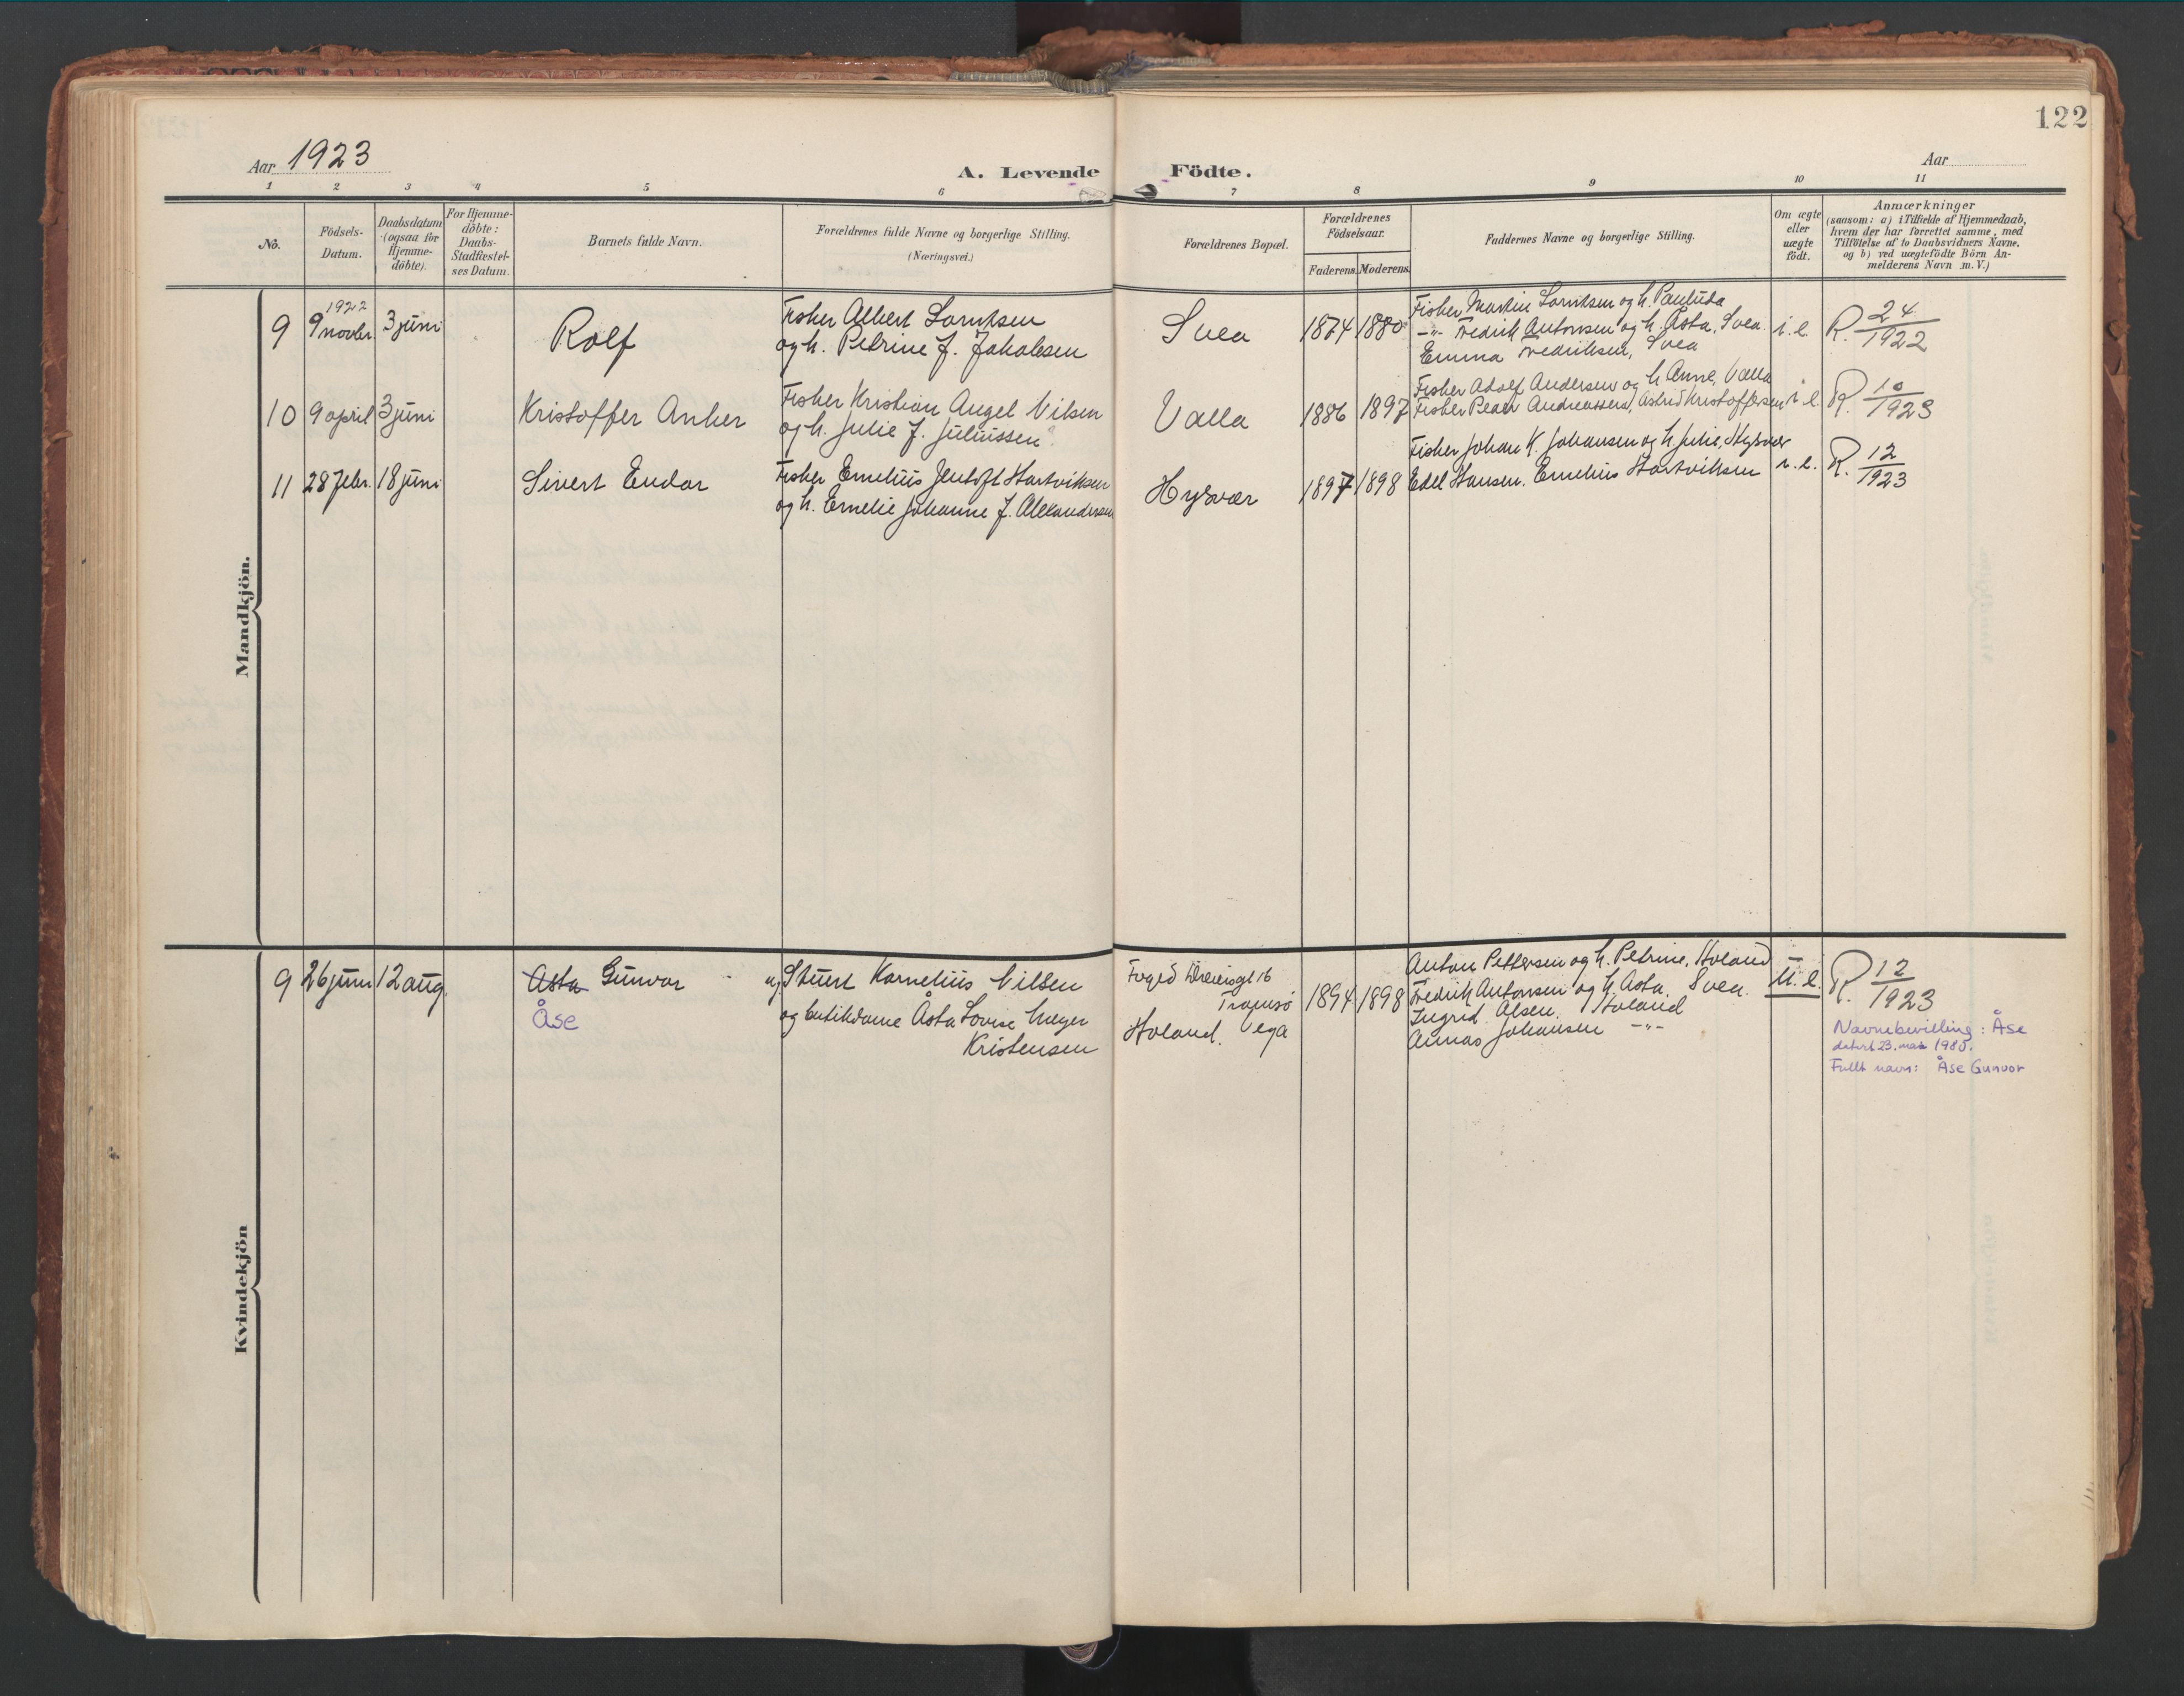 122
Aar 1923
A. Levende Födte.
Aar
1 2 3 4 5 6 7 8 9 10 11
No.
Födsels-
Datum.
Daabsdatum
(ogsaa for
Hjemme-
döbte).
For Hjemme-
döbte:
Daabs-
Stadfæstel-
ses Datum.
Barnets fulde Navn.
Forældrenes fulde Navne og borgerlige Stilling.
(Næringsvei.)
Forældrenes Bopæl.
Forældrenes
Födselsaar.
Faderens. Moderens.
Faddernes Navne og borgerlige Stilling.
Om ægte
eller
uægte
födt.
Anmærkninger
(saasom: a) i Tilfælde af Hjemmedaab,
hvem der har forrettet samme, med
Tilföielse af to Daabsvidners Navne.
og b) ved uægtefödte Börn An-
melderens Navn m.V.)
Mandkjön.
9
1922
9 novbr.
3 juni
Rolf
Fisker Albert Lorntsen
og h. Petrine f. Jakobsen
Svea
1874 1880
Fisker Martin Lorntsen og h. Paulida
-"- Fredrik Antonsen og h. Åsta, Svea.
Emma Fredriksen, Svea
i. e.
R. 24/1922
10
9 april
3 juni
Kristoffer Anker
Fisker Kristian Angel Nilsen
og h. Julie f. Juliussen
Valla
1886 1897
Fisker Adolf Andersen og h. Anne, Valla
Fisker Peder Andreassen, Astrid Kristoffersen
i. e.
R. 10/1923
11
28 febr.
18 juni
Sivert Endor
Fisker Emelius Jentoft Hartviksen
og h. Emelie Johanne f. Alexandersen
Hysvær
1897 1898
Fisker Johan K. Johansen og h. Julie, Hysvær
Edel Hansen. Emelius Hartviksen
i. e.
R. 12/1923
Kvindekjön
9
26 juni
12 aug.
Asta Gunvor
Åse
ug. Stuert Kornelius Nilsen
og butikdame Åsta Lovise Meyer
Kristensen
Foged Dreiersgt 16
Tromsø
Holand. Vega
1894 1898
Anton Pettersen og h. Petrine, Holand
Fredrik Antonsen og h. Asta. Svea.
Ingrid Olsen. Holand
Annas Johansen -"-
U. e.
R. 12/1923
Navnebevilling: Åse
datert 23. mai 1985.
Fullt navn: Åse Gunvor